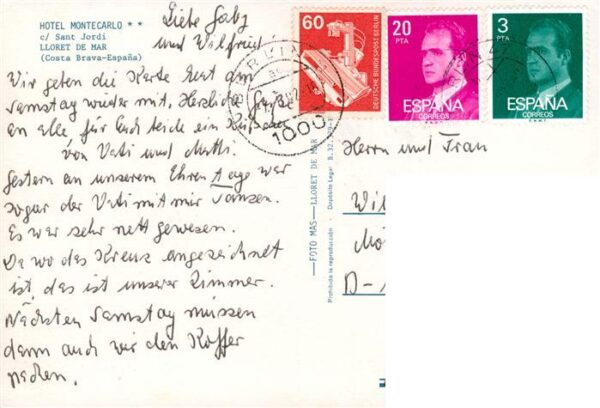 HOTEL MONTECARLO **
c/ Sant Jordi
LLORET DE MAR
(Costa Brava-España)
Liebe Gabz
und Wilfried!
Wir geben die Karte erst am
Samstag wieder mit. Herzliche Grüße
an alle für Euch beide ein Küsschen
von Vati und Mutti.
Gestern an unserem Ehrentage war
sogar der Vati mit mir tanzen.
Es war sehr nett gewesen.
Da wo das Kreuz angezeichnet
ist, das ist unser Zimmer.
Nächsten Samstag müssen
dann auch wir den Koffer
packen.
60
DEUTSCHE BUNDESPOST BERLIN
20
PTA
ESPAÑA
CORREOS
3
PTA
ESPAÑA
CORREOS
1000
FOTO MAS — LLORET DE MAR
Prohibida la reproducción
Depósito Legal B. 32.
Herrn und Frau
Wil
D-